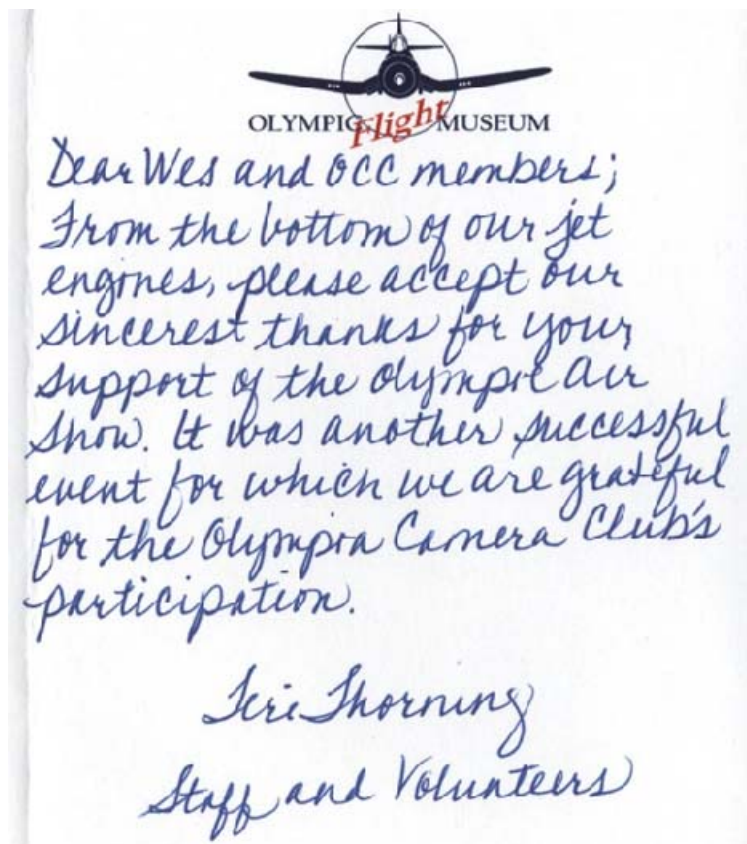 OLYMPIC Flight MUSEUM
Dear Wes and OCC members;
From the bottom of our jet
engines, please accept our
sincerest thanks for your
support of the Olympic Air
Show. It was another successful
event for which we are grateful
for the Olympia Camera Club's
participation.
Teri Thorning
Staff and Volunteers